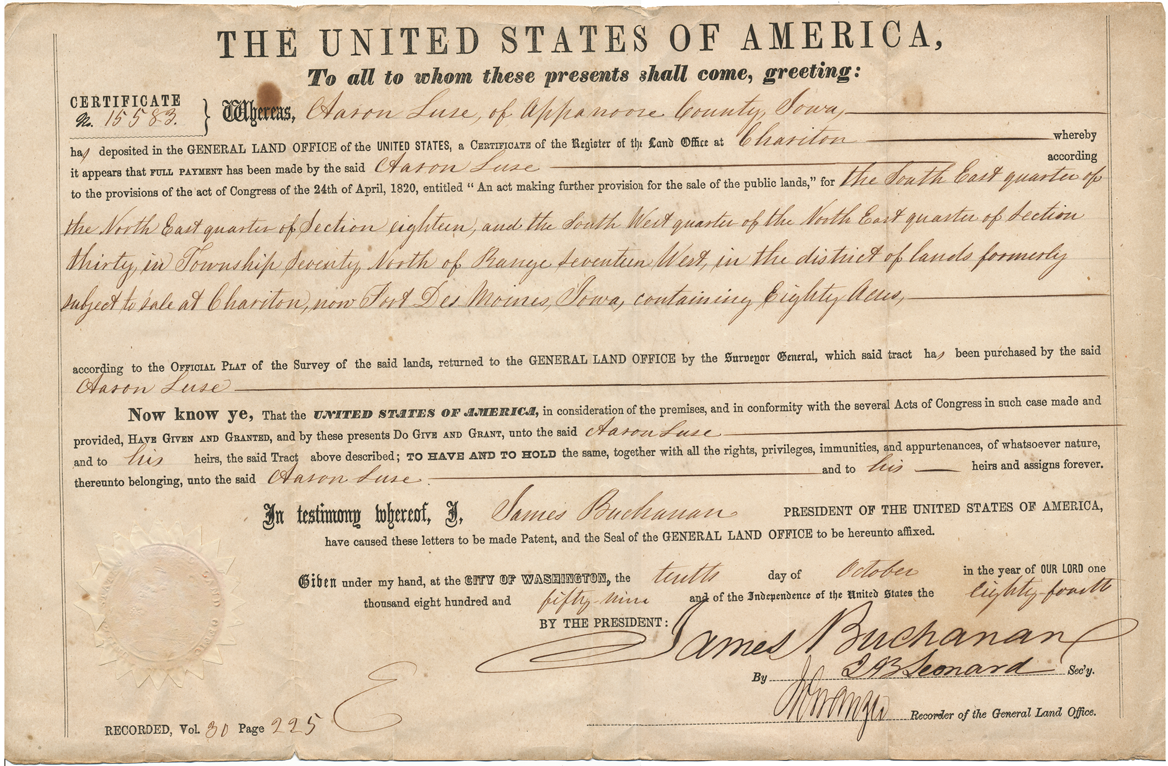 THE UNITED STATES OF AMERICA,
To all to whom these presents shall come, greeting:
CERTIFICATE
No. 15583.
Whereas, Aaron Luse, of Appanoose County, Iowa,
has deposited in the GENERAL LAND OFFICE of the UNITED STATES, a CERTIFICATE of the Register of the Land Office at Chariton whereby
it appears that FULL PAYMENT has been made by the said Aaron Luse according
to the provisions of the act of Congress of the 24th of April, 1820, entitled “An act making further provision for the sale of the public lands,” for the South East quarter of
the North East quarter of Section eighteen, and the South West quarter of the North East quarter of Section
thirty, in Township Seventy North of Range seventeen West, in the district of lands formerly
subject to sale at Chariton, now Fort Des Moines, Iowa, containing Eighty Acres,
according to the OFFICIAL PLAT of the Survey of the said lands, returned to the GENERAL LAND OFFICE by the Surveyor General, which said tract has been purchased by the said
Aaron Luse
Now know ye, That the UNITED STATES OF AMERICA, in consideration of the premises, and in conformity with the several Acts of Congress in such case made and
provided, HAVE GIVEN AND GRANTED, and by these presents DO GIVE AND GRANT, unto the said Aaron Luse
and to his heirs, the said Tract above described; TO HAVE AND TO HOLD the same, together with all the rights, privileges, immunities, and appurtenances, of whatsoever nature,
thereunto belonging, unto the said Aaron Luse and to his heirs and assigns forever.
In testimony whereof, I, James Buchanan PRESIDENT OF THE UNITED STATES OF AMERICA,
have caused these letters to be made Patent, and the Seal of the GENERAL LAND OFFICE to be hereunto affixed.
Given under my hand, at the CITY OF WASHINGTON, the tenth day of October in the year of OUR LORD one
thousand eight hundred and fifty-nine and of the Independence of the United States the eighty-fourth
BY THE PRESIDENT: James Buchanan
By J. B. Leonard Sec'y.
Recorder of the General Land Office.
RECORDED, Vol. 30 Page 225
E